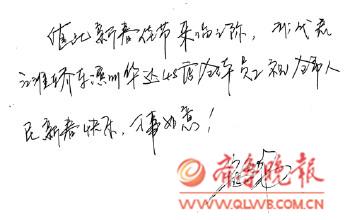 值此新春佳节来临之际，我代表
江淮轿车滨州华达4S店全体员工祝全市人
民新春快乐，万事如意！
齐鲁晚报
WWW.QLWB.COM.CN